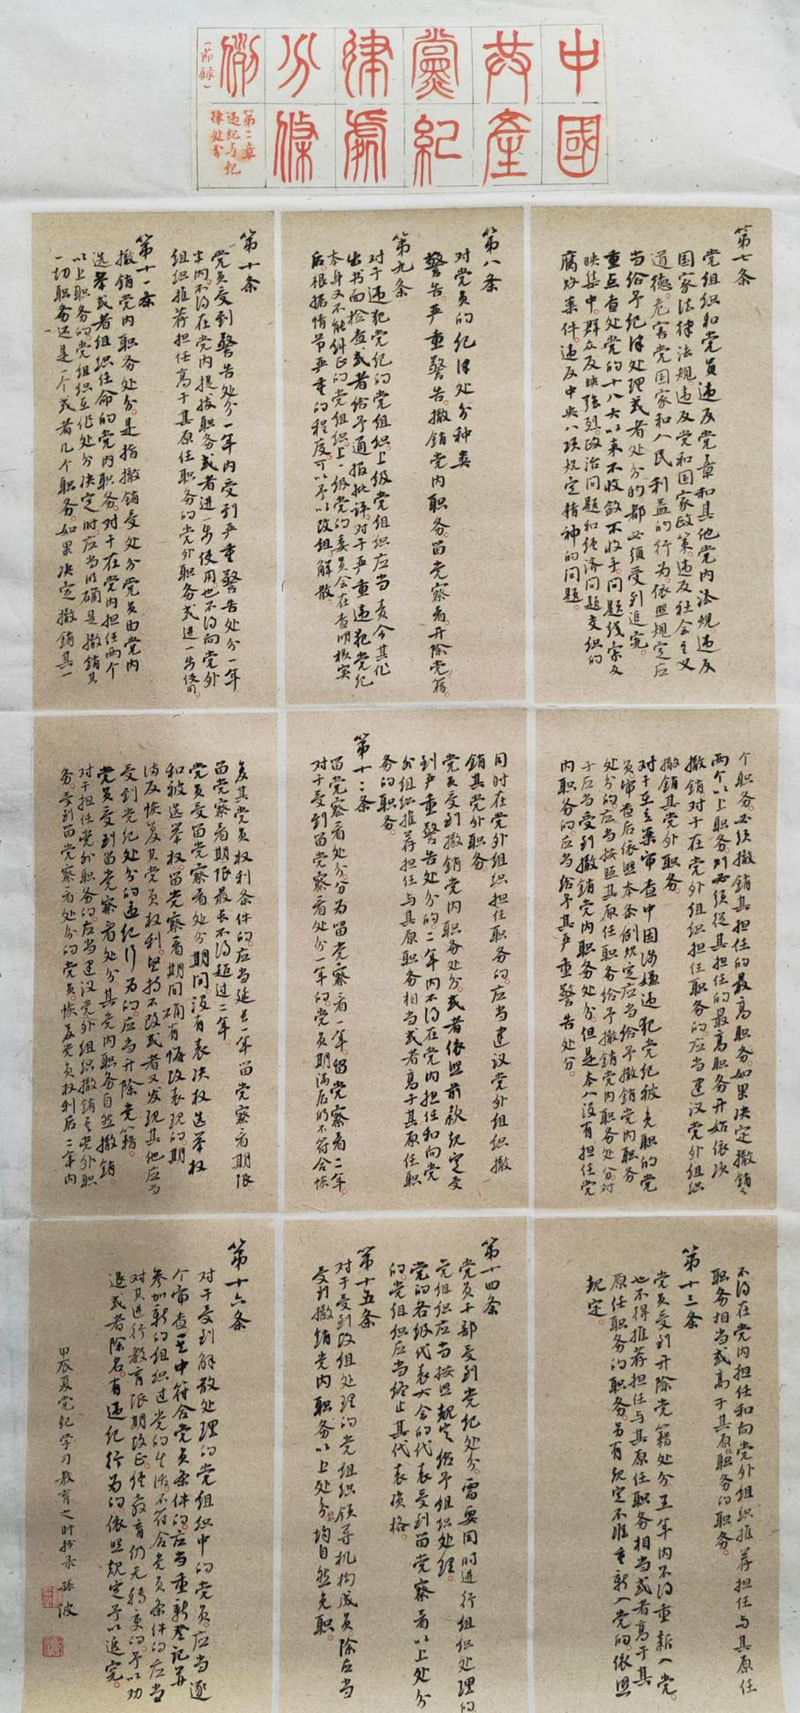 中國
共產
黨紀
律處
分條
例
（節錄）
第二章
违纪与纪
律处分
第七条
党组织和党员违反党章和其他党内法规违反
国家法律法规违反党和国家政策。违反社会主义
道德。危害党国家和人民利益的行为依照规定应
当给予纪律处理或者处分的都必须受到追究。
重点查处党的十八大以来不收敛不收手。问题线索反
映集中。群众反映强烈。政治问题和经济问题交织的
腐败案件。违反中央八项规定精神的问题。
第八条
对党员的纪律处分种类
警告。严重警告。撤销党内职务。留党察看。开除党籍。
第九条
对于违犯党纪的党组织上级党组织应当责令其作
出书面检查或者给予通报批评。对于严重违犯党纪
本身又不能纠正的党组织。上一级党的委员会在查明核实
后根据情节严重的程度。可以予以改组。解散。
第十条
党员受到警告处分一年内受到严重警告处分一年
半内不得在党内提拔职务或者进一步使用也不得向党外
组织推荐担任高于其原任职务的党外职务或进一步使用。
第十一条
撤销党内职务处分。是指撤销受处分党员由党内
选举或者组织任命的党内职务。对于在党内担任两个
以上职务的党组织在作处分决定时应当明确是撤销其
一切职务还是一个或者几个职务。如果决定撤销其一
个职务。必须撤销其担任的最高职务。如果决定撤销其
两个以上职务则必须从其担任的最高职务开始依次
撤销对于在党外组织担任职务的。应当建议党外组织
撤销其党外职务。
对于在立案审查中因涉嫌违犯党纪被免职的党
员审查后依照本条例规定应当给予撤销党内职务
处分的应当按照其原任职务给予撤销党内职务处分对
于应当受到撤销党内职务处分但是本人没有担任党
内职务的应当给予其严重警告处分。
同时在党外组织担任职务的。应当建议党外组织撤
销其党外职务
党员受到撤销党内职务处分。或者依照前款规定受
到严重警告处分的二年内不得在党内担任和向党
外组织推荐担任与其原职务相当或者高于其原任职
务的职务
第十二条
留党察看处分分为留党察看一年。留党察看二年。
对于受到留党察看处分一年的党员期满后仍不符合恢
复其党员权利条件的应当延长一年留党察看期限
留党察看期限最长不得超过二年
党员受留党察看处分期间没有表决权选举权
和被选举权留党察看期间确有悔改表现的期
满后恢复其党员权利。坚持不改或者又发现其他应当
受到党纪处分的违纪行为的应当开除党籍。
党员受到留党察看处分。其党内职务自然撤销
对于担任党外职务的应当建议党外组织撤销其党外职
务。受到留党察看处分的党员。恢复党员权利后二年内
不得在党内担任和向党外组织推荐担任与其原任
职务相当或高于其原职务的职务。
第十三条
党员受到开除党籍处分五年内不得重新入党。
也不得推荐担任与其原任职务相当或者高于其
原任职务的职务。另有规定不准重新入党的依照
规定。
第十四条
党员干部受到党纪处分。需要同时进行组织处理的
党组织应当按照规定给予组织处理。
党的各级代表大会的代表受到留党察看以上处分
的党组织应当终止其代表资格。
第十五条
对于受到改组处理的党组织领导机构成员除应当
受到撤销党内职务以上处分。均自然免职。
第十六条
对于受到解散处理的党组织中的党员。应当逐
个审查其中符合党员条件的。应当重新登记并
参加新的组织过党的生活。不符合党员条件的应当
对其进行教育限期改正。经教育仍无转变的。予以劝
退或者除名。有违纪行为的依照规定予以追究。
甲辰夏党纪学习教育之时抄录 孙波